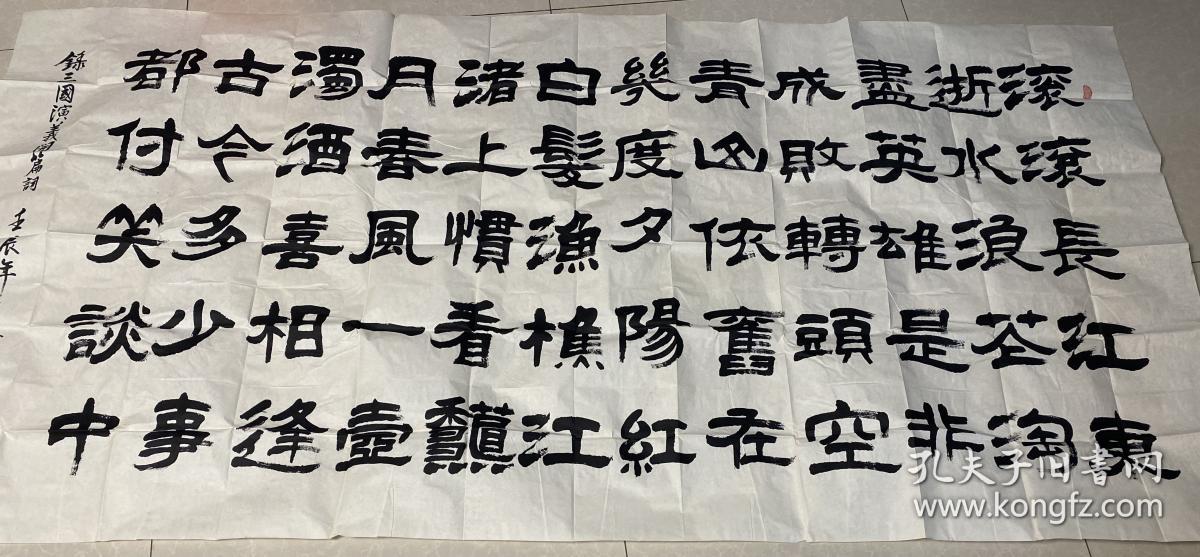 滚滚長江東
逝水浪花淘
盡英雄是非
成敗轉頭空
青山依舊在
幾度夕陽紅
白髮漁樵江
渚上慣看龝
月春風一壺
濁酒喜相逢
古今多少事
都付笑談中
錄三國演義開篇詞
壬辰年
孔夫子旧书网
www.kongfz.com